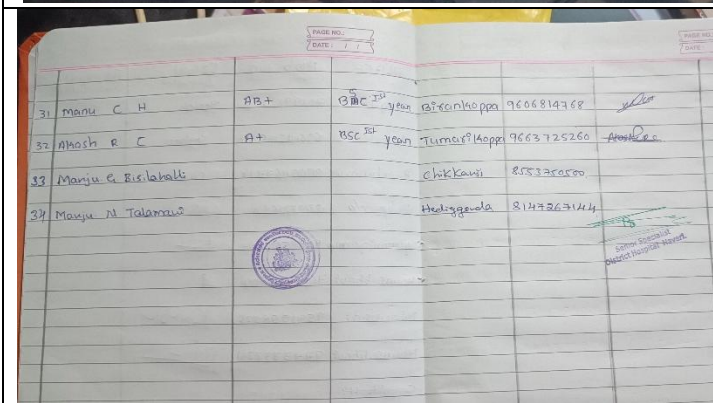 PAGE NO.:
DATE: / /
PAGE NO.
DATE:
31 Manu C H AB+ BSC Ist year Birankoppa 9606814768
32 Akash R C A+ BSC Ist year Tumarikoppa 9663725260
33 Manju G Bisilahalli Chikkanji 8553750500
34 Manju N Talamani Hediggonda 8147267144
Senior Specialist
District Hospital Haveri